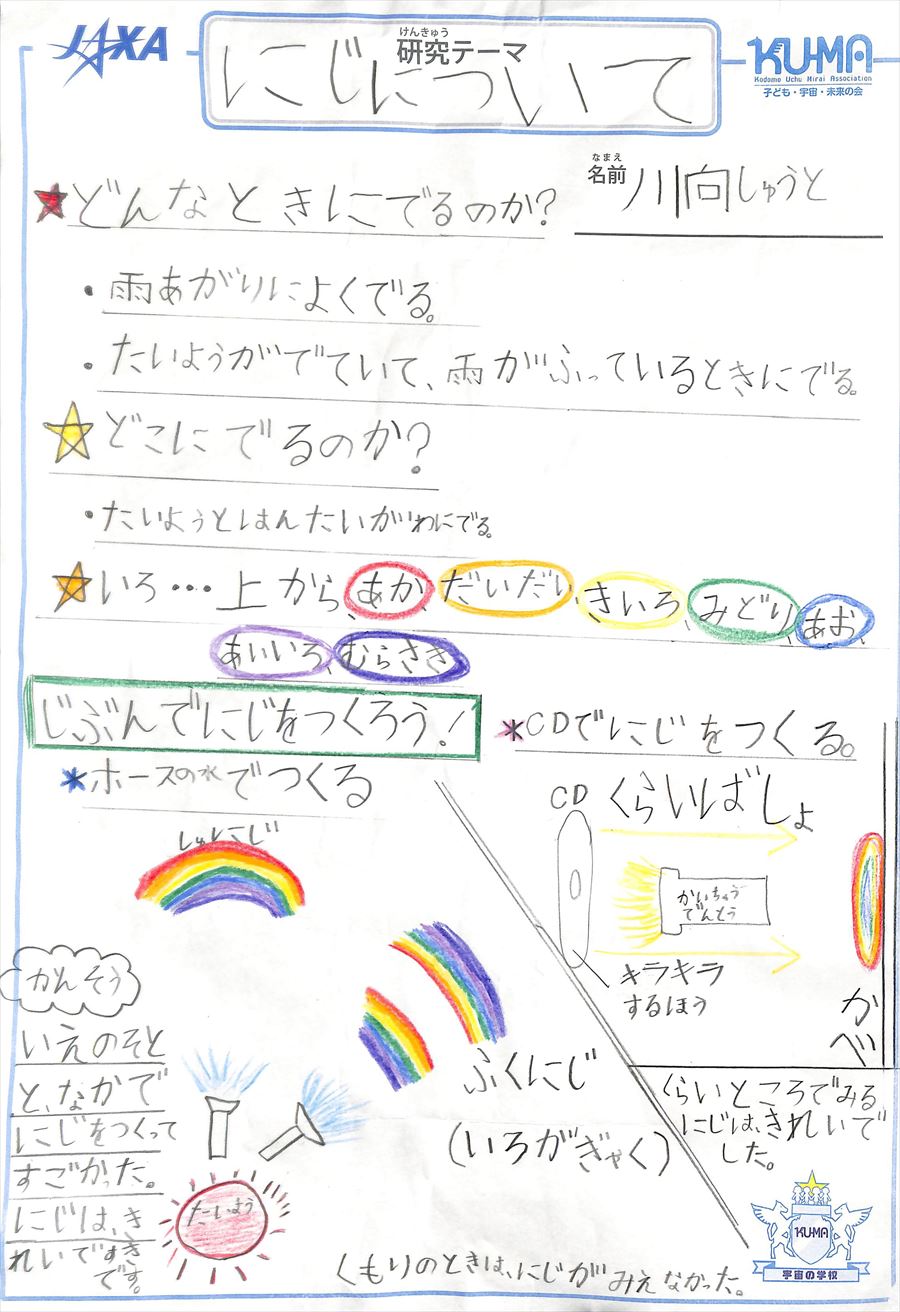 JAXA
けんきゅう
研究テーマ
にじについて
KU-MA
Kodomo Uchu Mirai Association
子ども・宇宙・未来の会
なまえ
名前
川向しゅうと
どんなときにでるのか?
・雨あがりによくでる。
・たいようがでていて、雨がふっているときにでる。
どこにでるのか?
・たいようとはんたいがわにでる。
いろ…上からあか、だいだい、きいろ、みどり、あお、
あいいろ、むらさき
じぶんでにじをつくろう!
ホースの水でつくる
しゅにじ
ふくにじ
(いろがぎゃく)
たいよう
くもりのときは、にじがみえなかった。
かんそう
いえのそと
と、なかで
にじをつくって
すごかった。
にじは、き
れいですき
です。
CDでにじをつくる。
くらいばしょ
CD
かいちゅう
でんとう
キラキラ
するほう
かべ
くらいところでみる
にじは、きれいで
した。
KU-MA
宇宙の学校